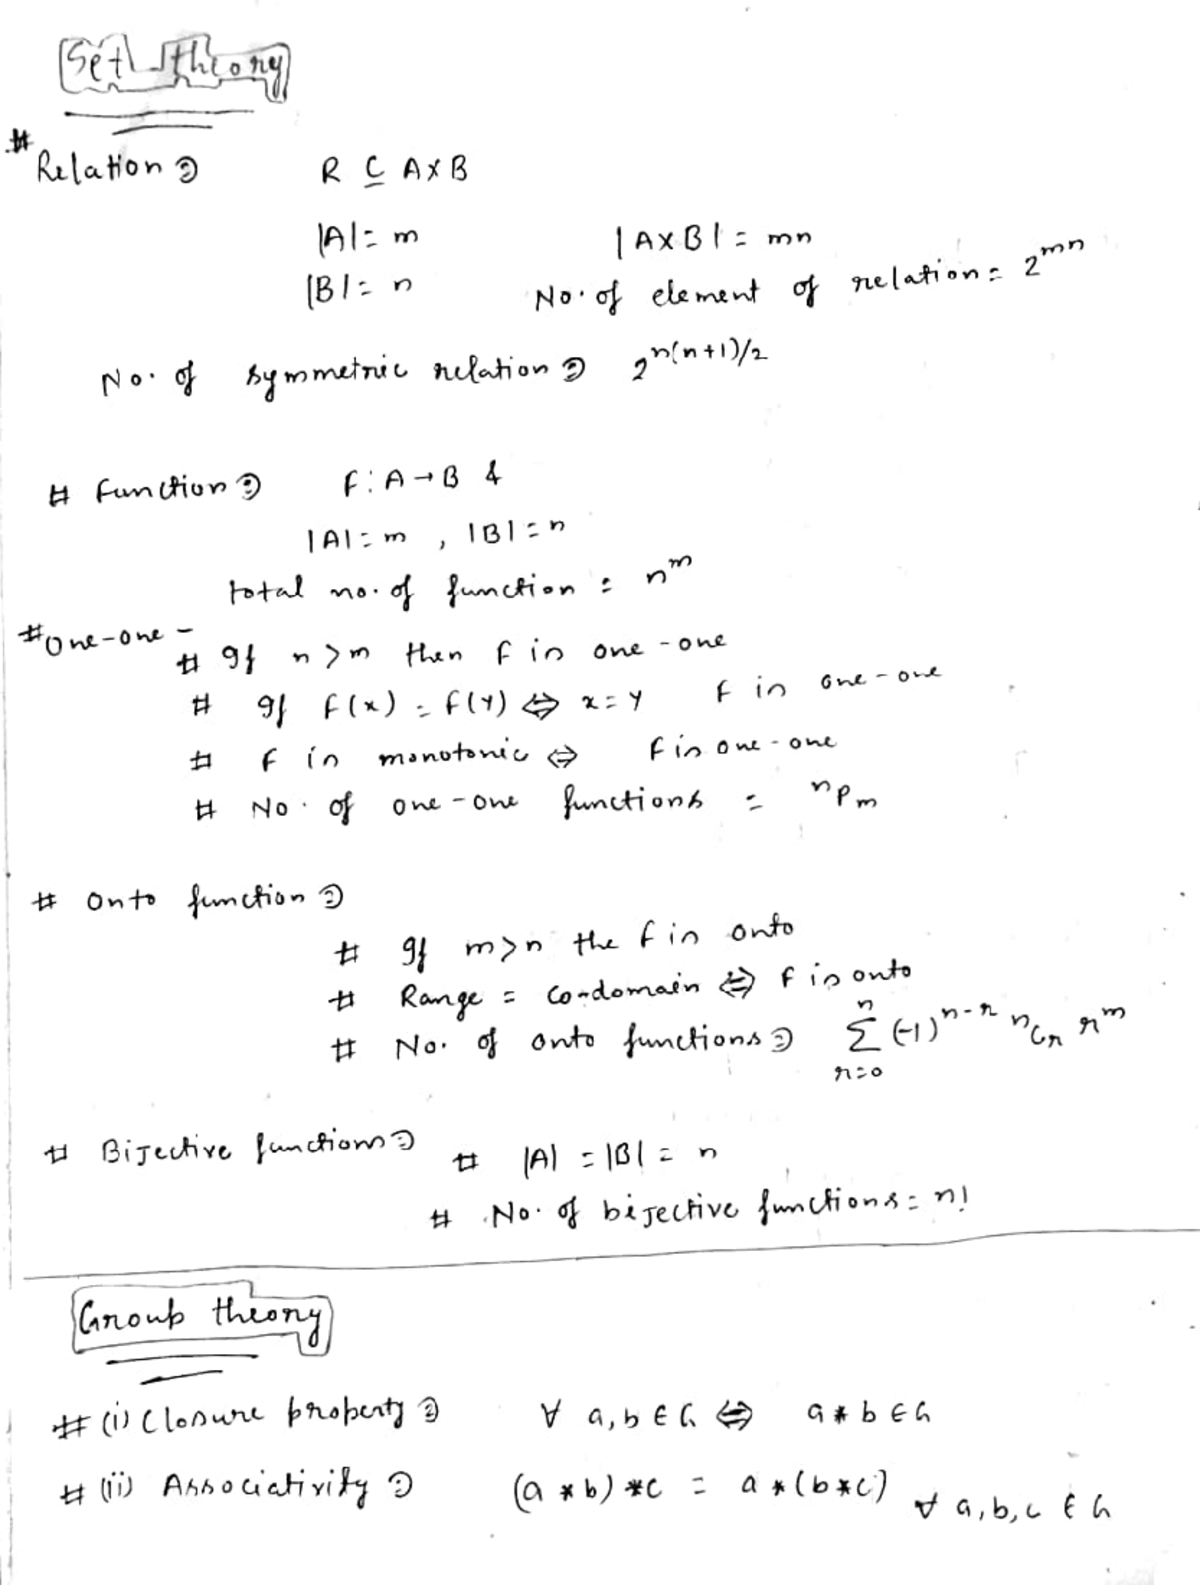 Set theory
# Relation ⇒ R ⊆ A×B
|A| = m |A×B| = mn
|B| = n No. of element of relation = 2^mn
No. of symmetric relation ⇒ 2^n(n+1)/2
# Function ⇒ f: A→B &
|A| = m , |B| = n
total no. of function = n^m
# One-one –
# If n > m then f is one-one
# If f(x) = f(y) ⇔ x = y f is one-one
# f is monotonic ⇔ f is one-one
# No. of one-one functions = nPm
# Onto function ⇒
# If m > n the f is onto
# Range = Co-domain ⇔ f is onto
# No. of onto functions ⇒ Σ_{r=0}^{n} (-1)^{n-r} nCr r^m
# Bijective functions ⇒ # |A| = |B| = n
# No. of bijective functions = n!
Group theory
# (i) Closure property ⇒ ∀ a, b ∈ G ⇔ a * b ∈ G
# (ii) Associativity ⇒ (a * b) * c = a * (b * c) ∀ a, b, c ∈ G